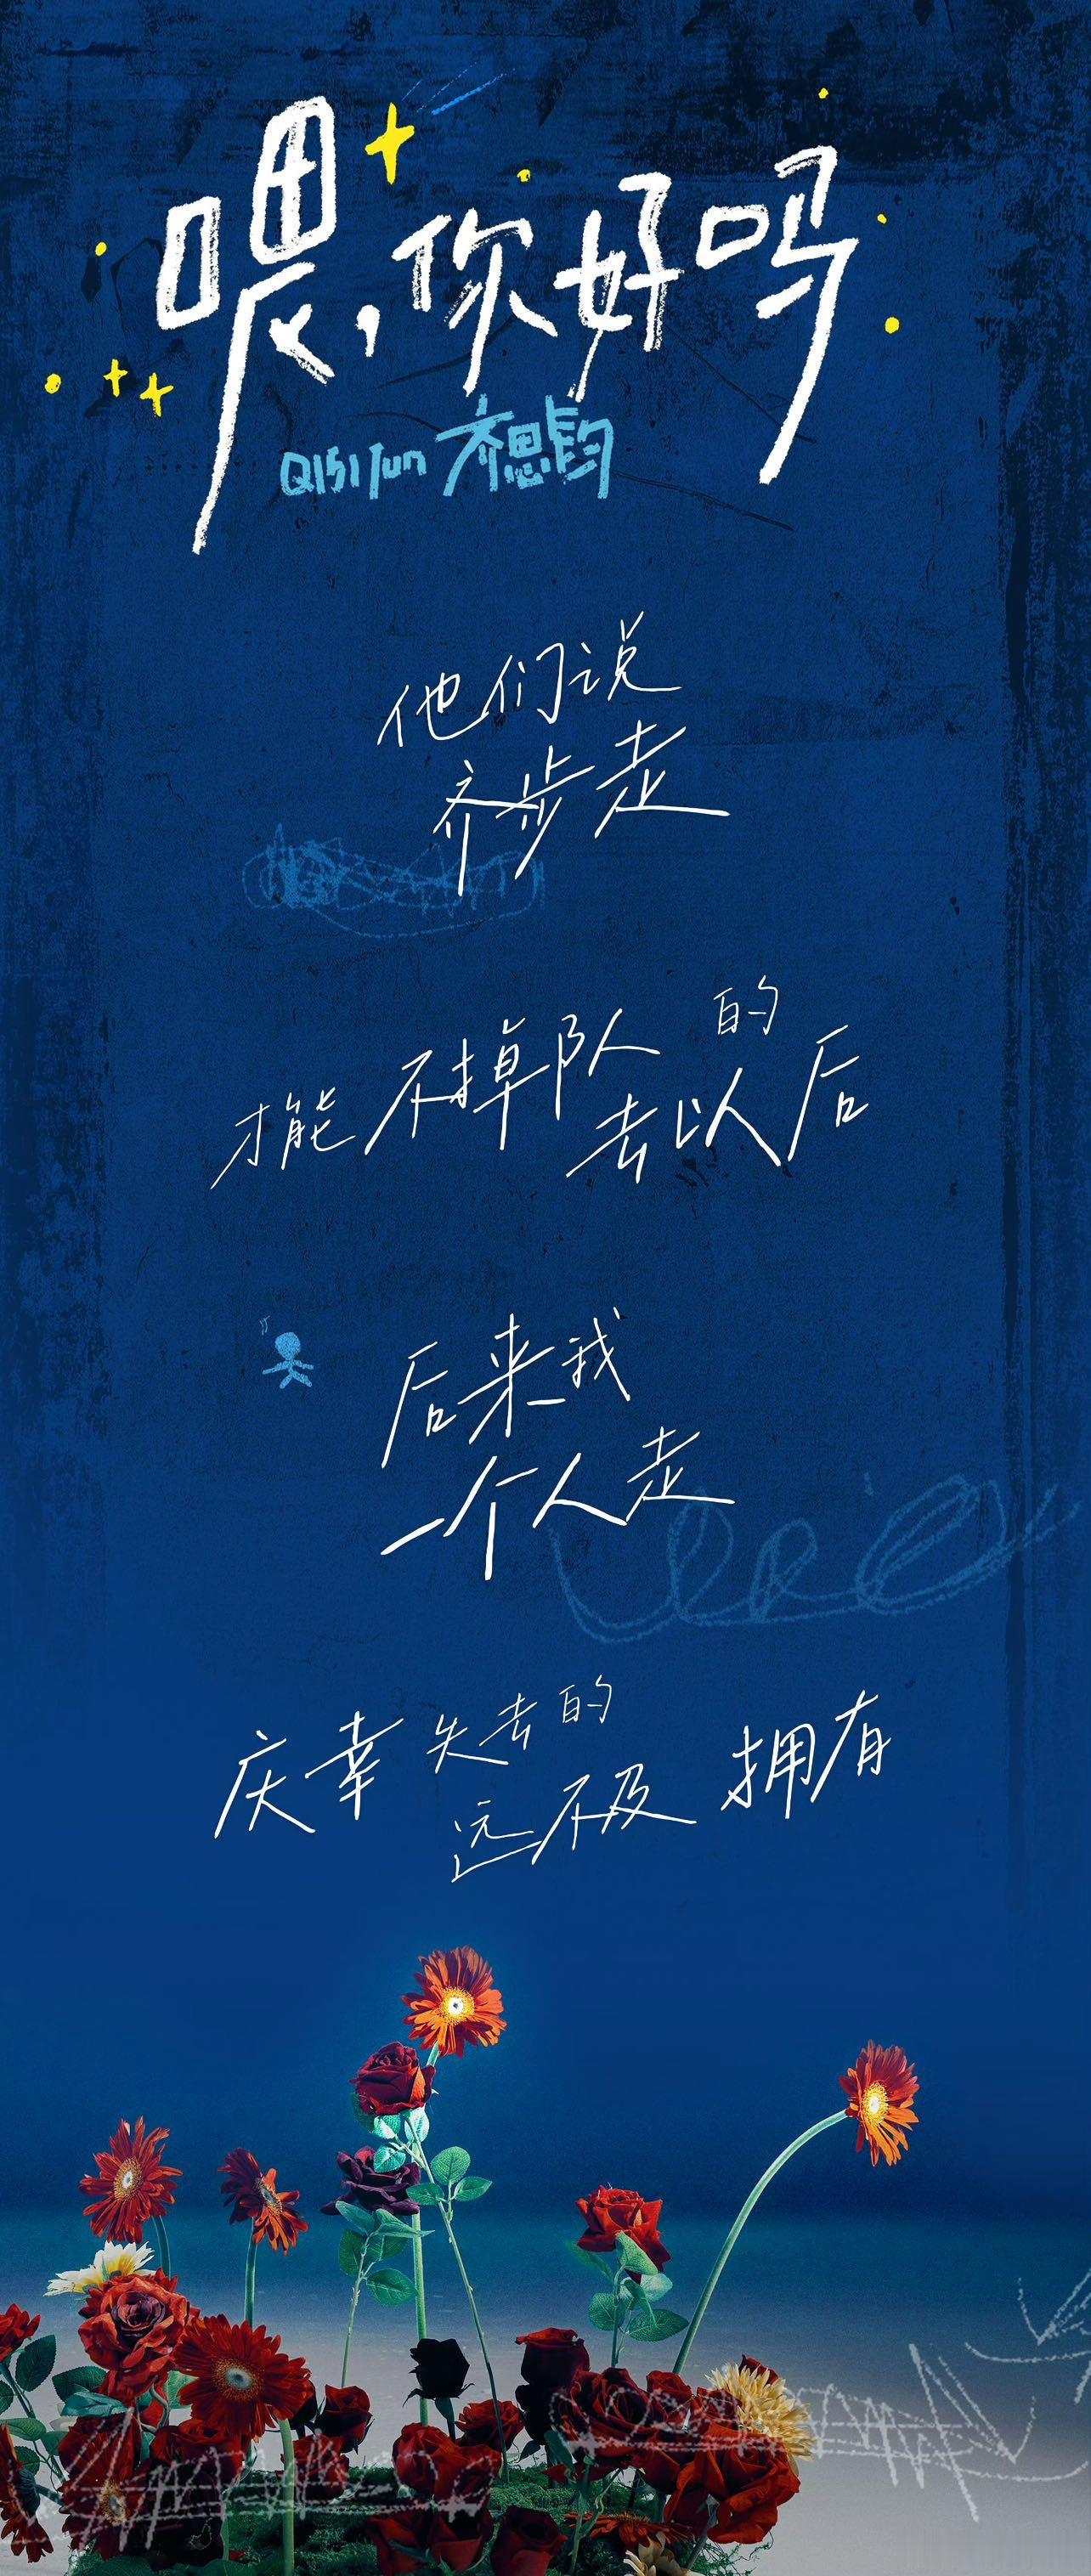 喂,你好吗
QiSiJun 齐思钧
他们说
齐步走
才能不掉队的
去以后
后来我
一个人走
庆幸失去的
远不及拥有